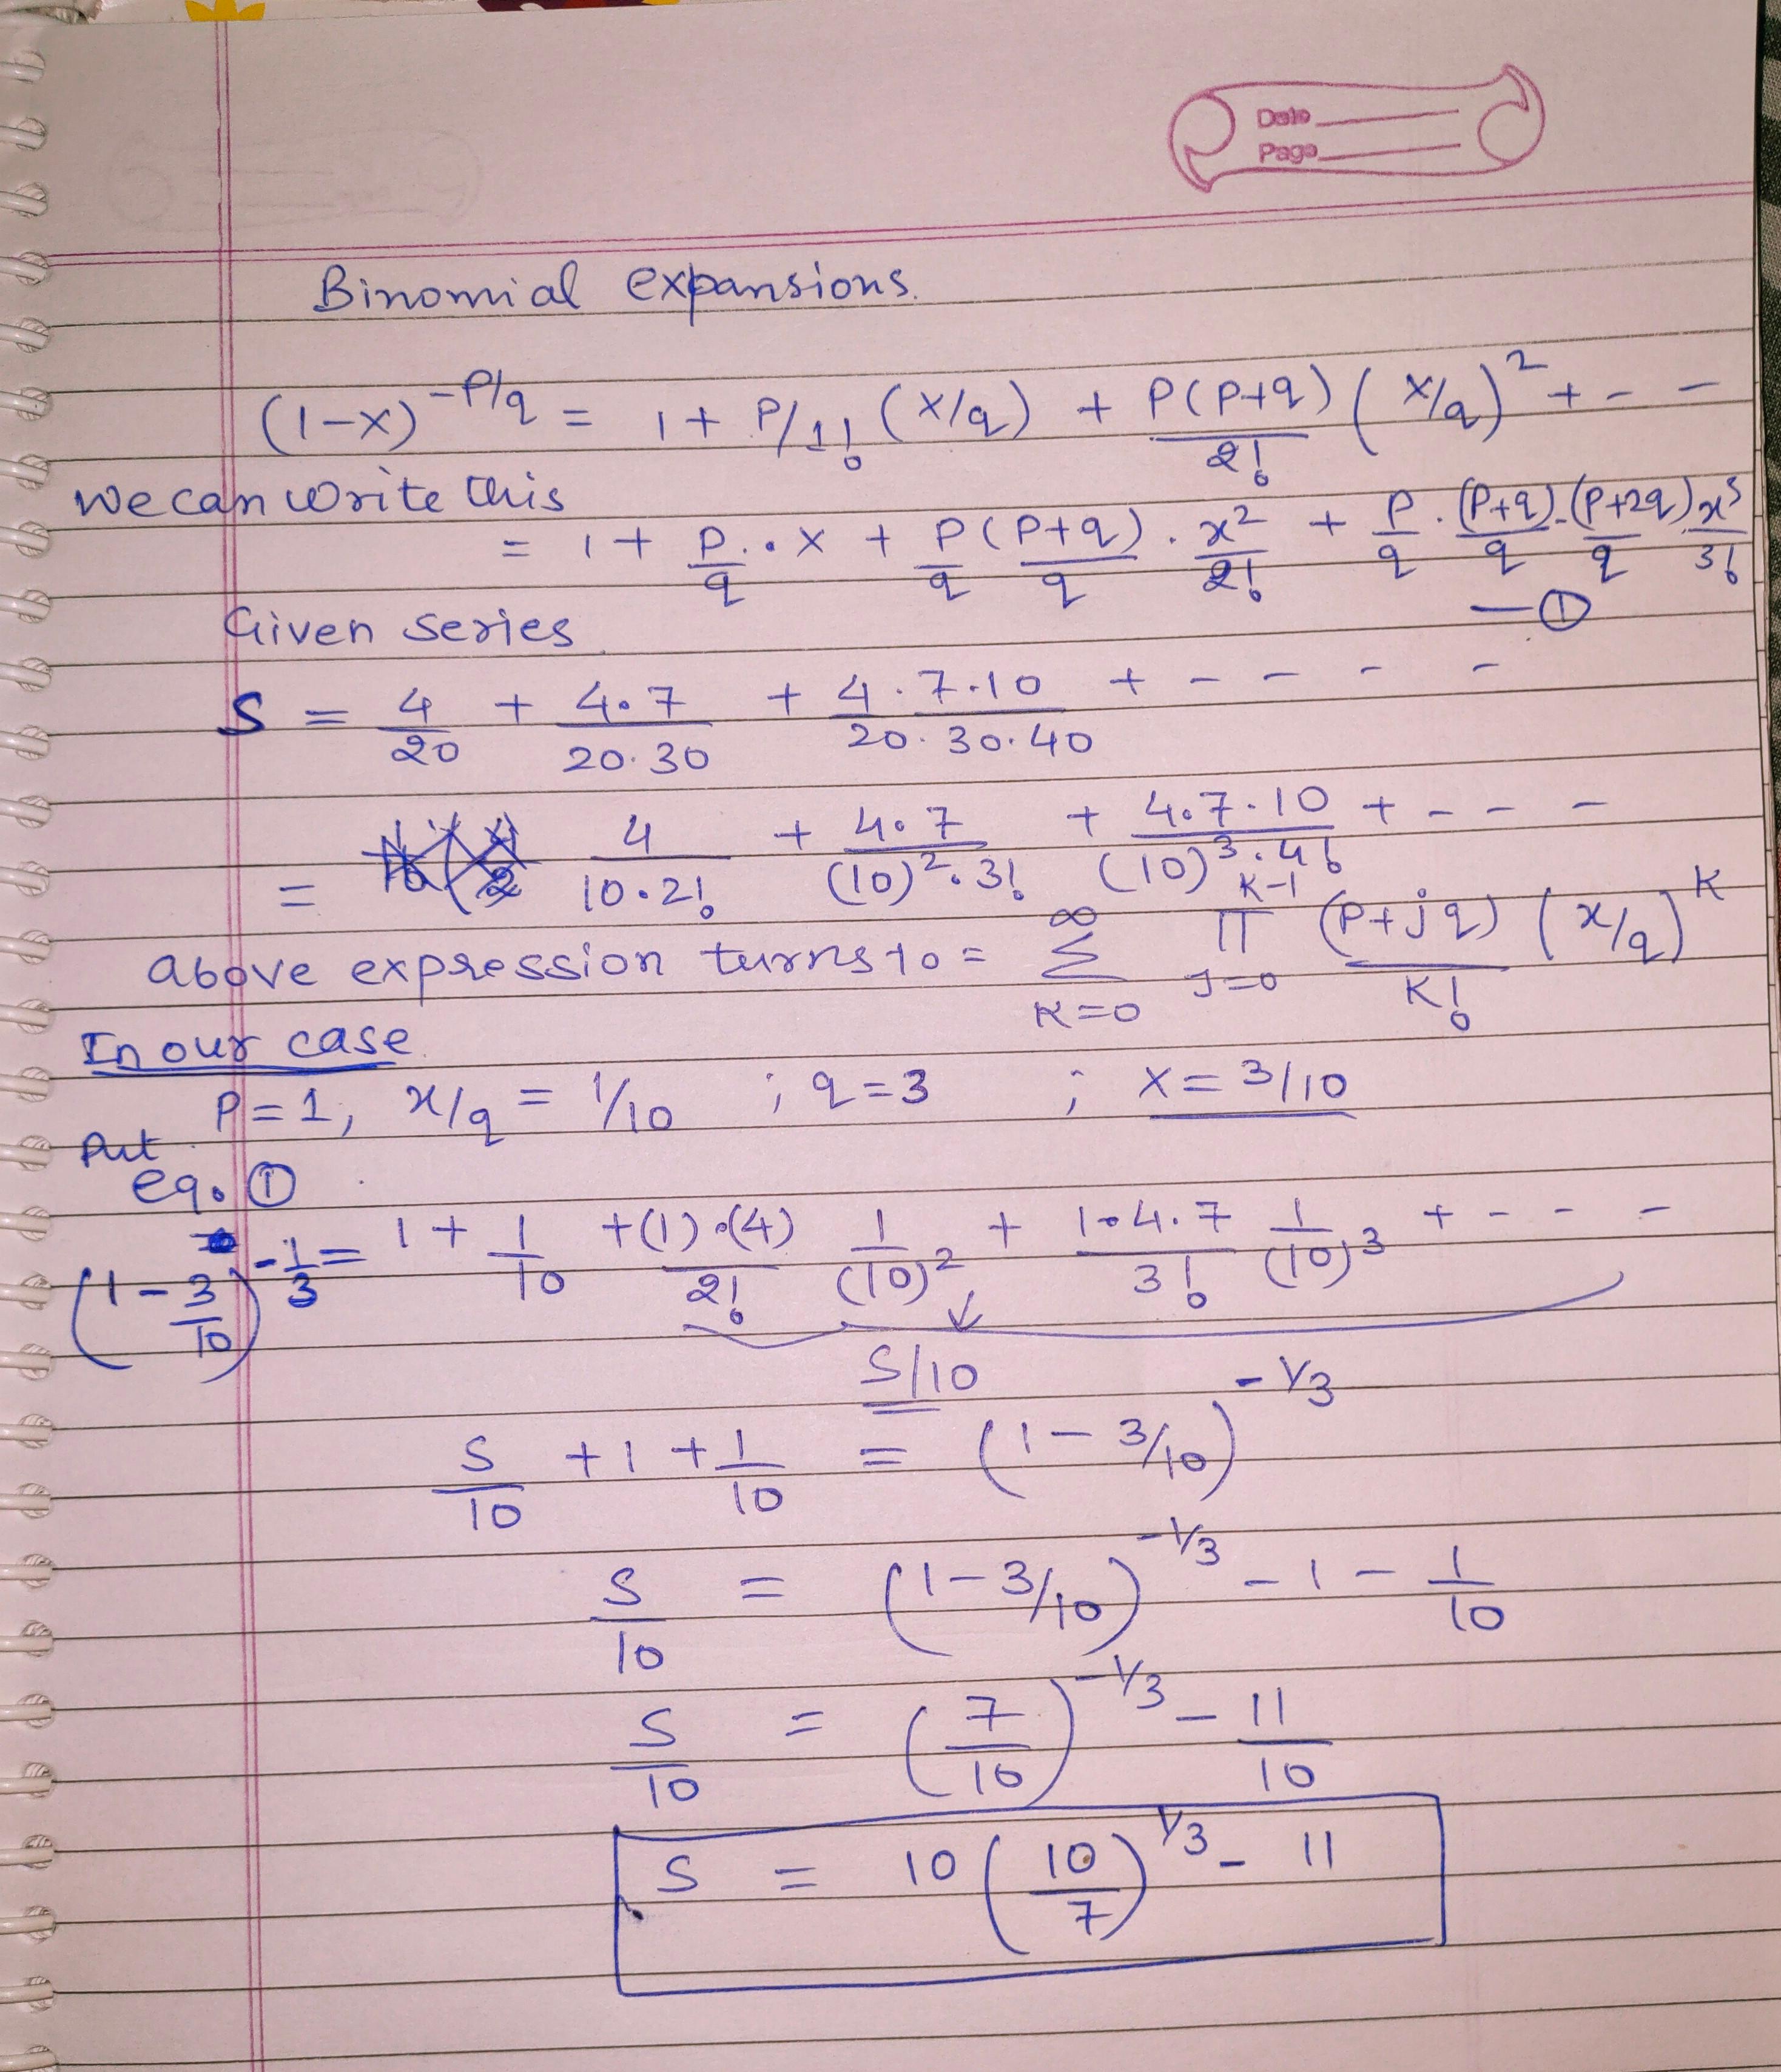 Date
Page
Binomial expansions.
(1-x)^-P/q = 1 + P/1! (x/q) + P(P+q)/2! (x/q)^2 + - -
we can write this
= 1 + P/q . x + P/q (P+q)/q . x^2/2! + P/q . (P+q)/q . (P+2q)/q x^3/3!
— ①
Given series
S = 4/20 + 4.7/20.30 + 4.7.10/20.30.40 + - - - -
= 4/10.2! + 4.7/(10)^2.3! + 4.7.10/(10)^3.4! + - - -
above expression turns to = ∑_{K=0}^{∞} ∏_{J=0}^{K-1} (P+jq)/K! (x/q)^K
In our case
P = 1, x/q = 1/10 ; q = 3 ; x = 3/10
Put
eq. ①
(1 - 3/10)^-1/3 = 1 + 1/10 + (1).(4)/2! 1/(10)^2 + 1.4.7/3! 1/(10)^3 + - - -
S/10
S/10 + 1 + 1/10 = (1 - 3/10)^-1/3
S/10 = (1 - 3/10)^-1/3 - 1 - 1/10
S/10 = (7/10)^-1/3 - 11/10
S = 10 (10/7)^1/3 - 11